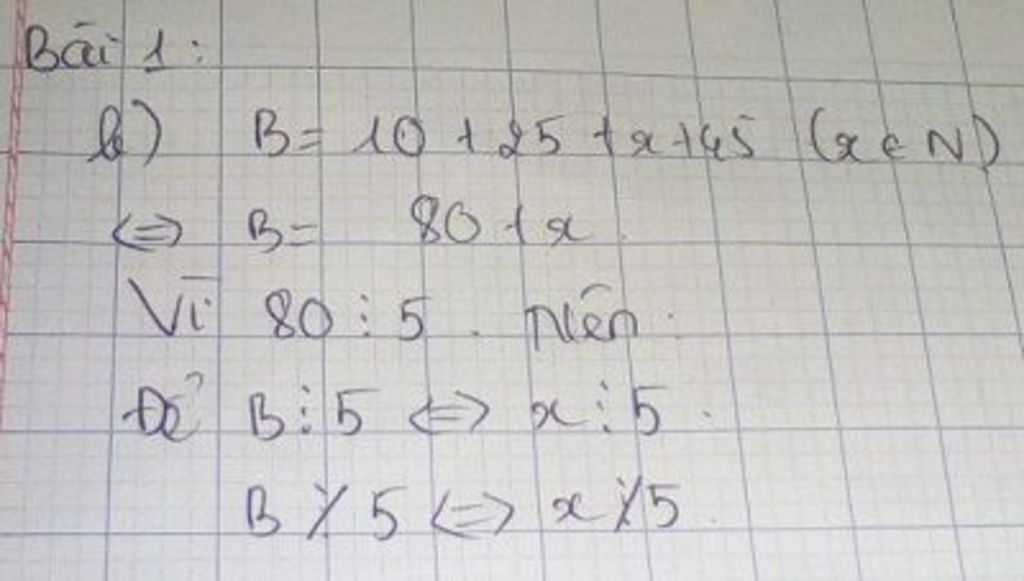 Bài 1:
b) B = 10 + 25 + x + 45 (x ∈ N)
⇔ B = 80 + x.
Vì 80 ⋮ 5. Nên:
Để B ⋮ 5 ⇔ x ⋮ 5.
B ⋮̸ 5 ⇔ x ⋮̸ 5.